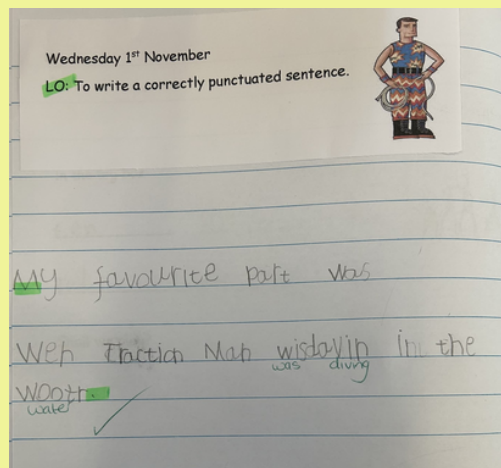 Wednesday 1st November
LO: To write a correctly punctuated sentence.
My favourite part was
Weh Traction Man wisdayin in the
was diving
wootr.
water